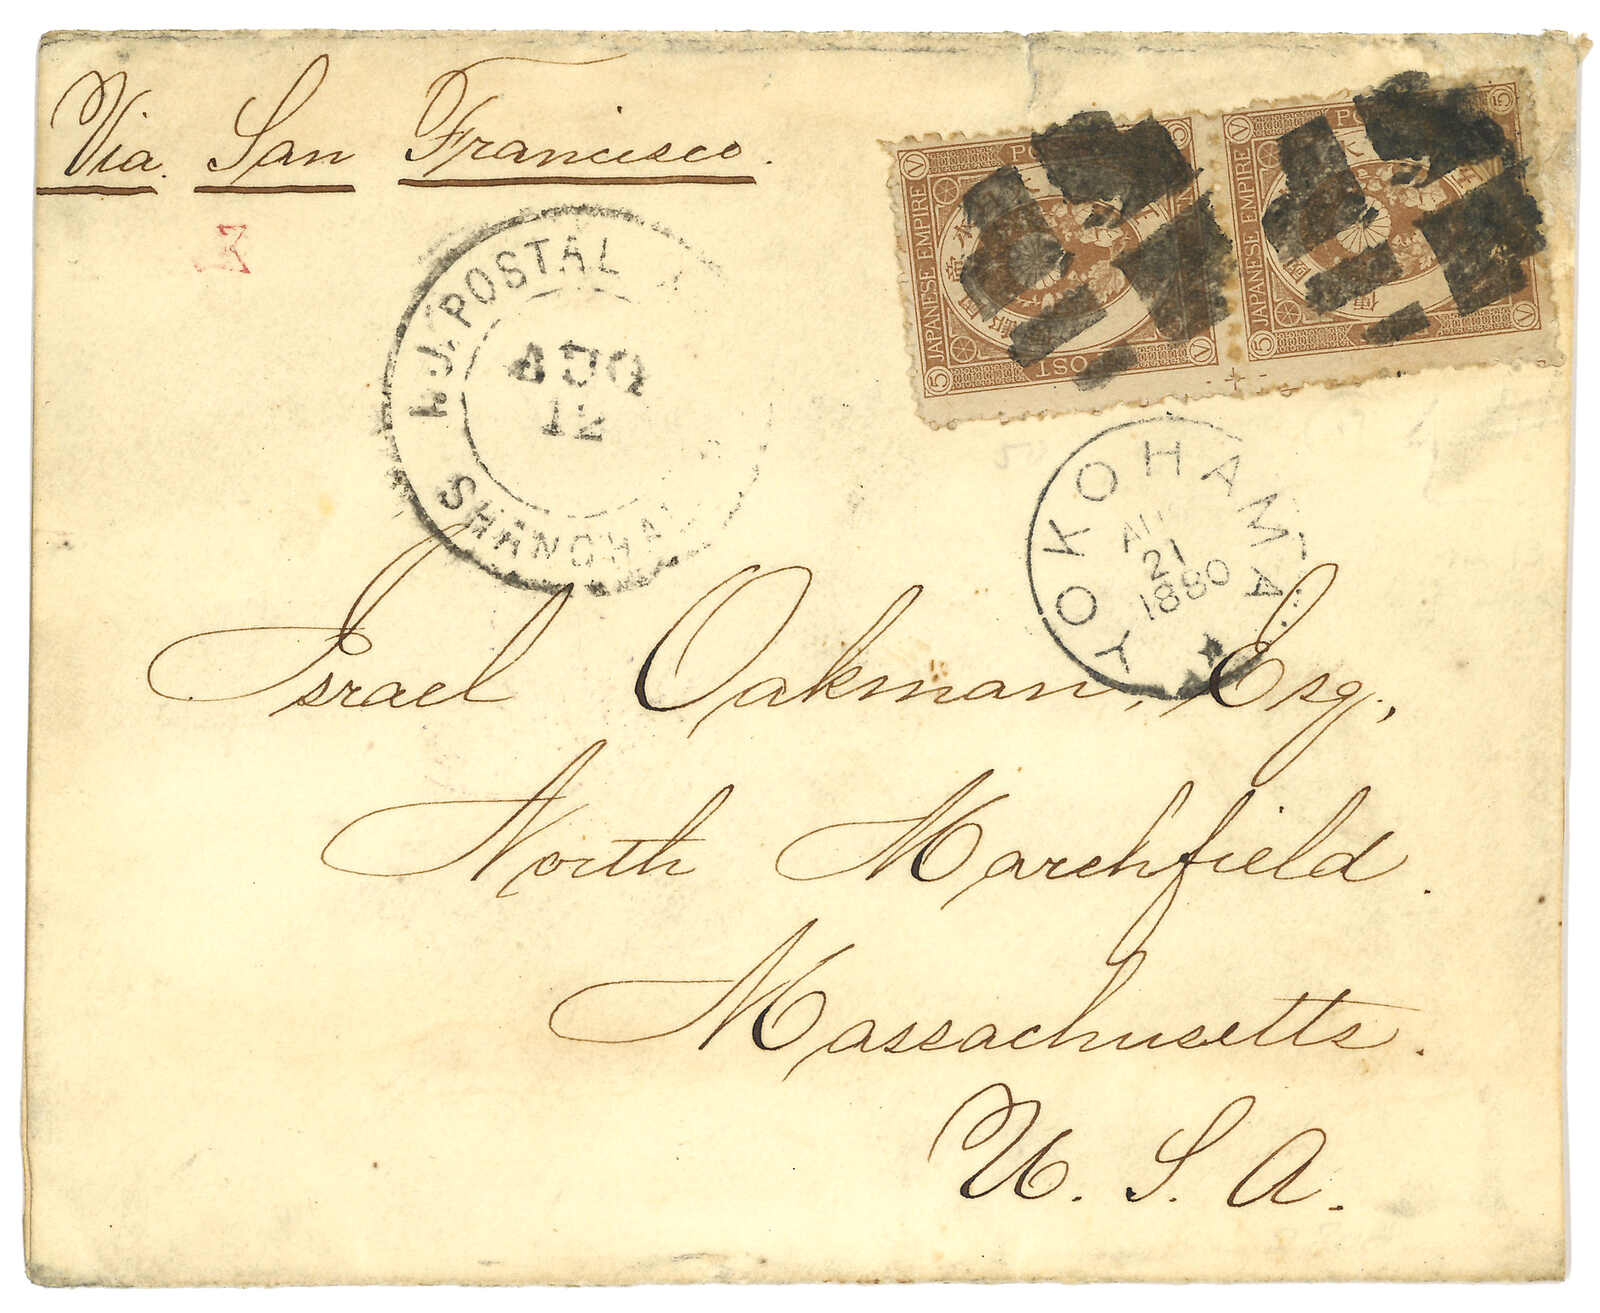 Via San Francisco.
POSTAL
AUG
12
SHANGHAI
JAPANESE EMPIRE
POST
5
V
5
V
JAPANESE EMPIRE
5
V
5
V
YOKOHAMA
21
1880
Israel Oakman, Esq.,
North Marchfield.
Massachusetts.
U. S. A.